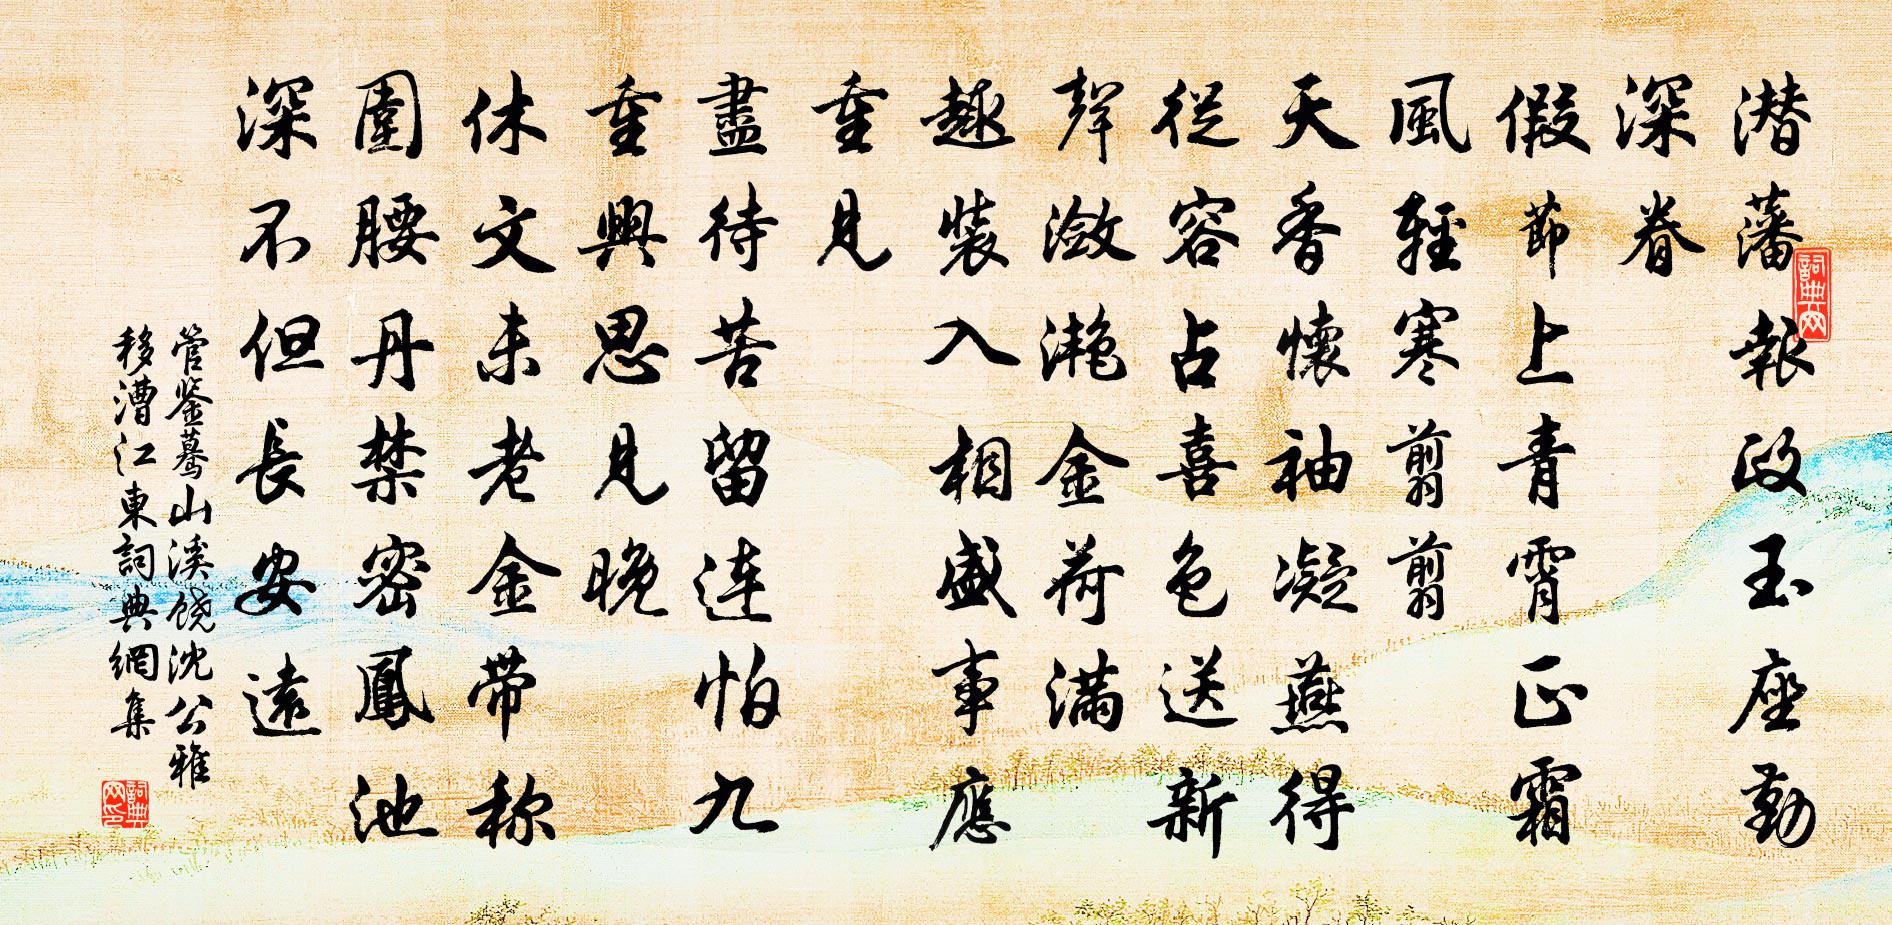 潜藩報政玉座勤
深眷
假節上青霄正霜
風輕寒剪剪
天香懷袖凝燕得
從容占喜色送新
聲瀲灔金荷滿
趣裝入相盛事應
重見
盡待苦留連怕九
重興思見晚
休文未老金帶称
圍腰丹禁密鳳池
深不但長安遠
管鉴蓦山溪饶沈公雅
移漕江東詞典網集
詞典网
詞典网印